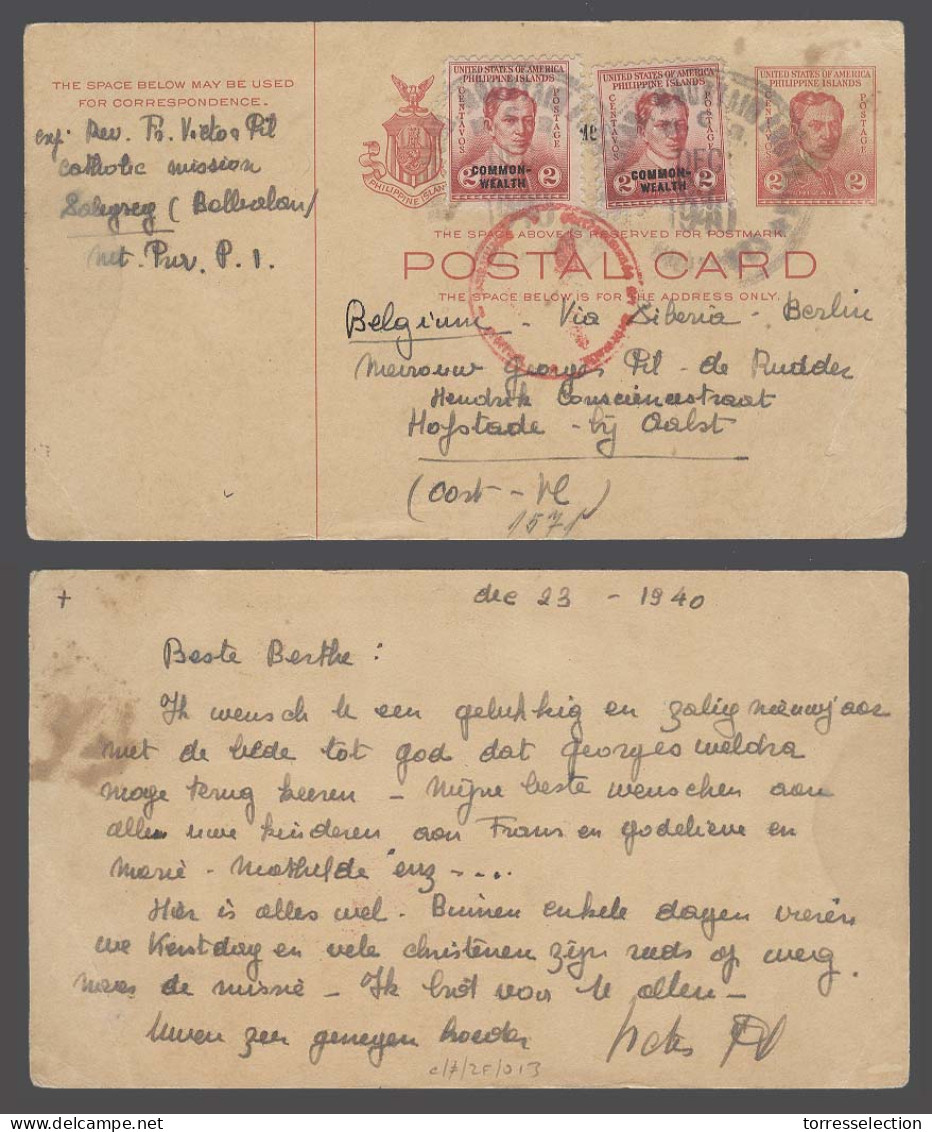 THE SPACE BELOW MAY BE USED
FOR CORRESPONDENCE.
exp. Rev. Fr. Victor Pil
Catholic mission
(
Mt. Prov. P. I.
PHILIPPINE ISLANDS
UNITED STATES OF AMERICA
PHILIPPINE ISLANDS
CENTAVOS
POSTAGE
2 COMMON- 2
WEALTH
UNITED STATES OF AMERICA
PHILIPPINE ISLANDS
CENTAVOS
POSTAGE
2 COMMON- 2
WEALTH
UNITED STATES OF AMERICA
PHILIPPINE ISLANDS
CENTAVOS
POSTAGE
2 2
DEC
1940
THE SPACE ABOVE IS RESERVED FOR POSTMARK.
POSTAL CARD
THE SPACE BELOW IS FOR THE ADDRESS ONLY.
Belgium - Via Siberia - Berlin
Mevrouw Georges Pil - de Rudder
Hendrik Consciencestraat
Hofstade - bij Aalst
(Oost - Vl)
1571
+
dec 23 - 1940
Beste Berthe:
Ik wensch U een gelukkig en zalig nieuwjaar
met de bede tot god dat Georges weldra
moge terug keeren - Mijne beste wenschen aan
alle uwe kinderen aan Frans en godelieve en
Marie - Mathilde enz - ...
Hier is alles wel. Binnen enkele dagen vieren
we Kerstdag en vele christenen zijn reeds op weg
naar de missie - Ik bid voor U allen -
Uwen zeer genegen broeder Victor Pil
c/7/2F/013
torresselection